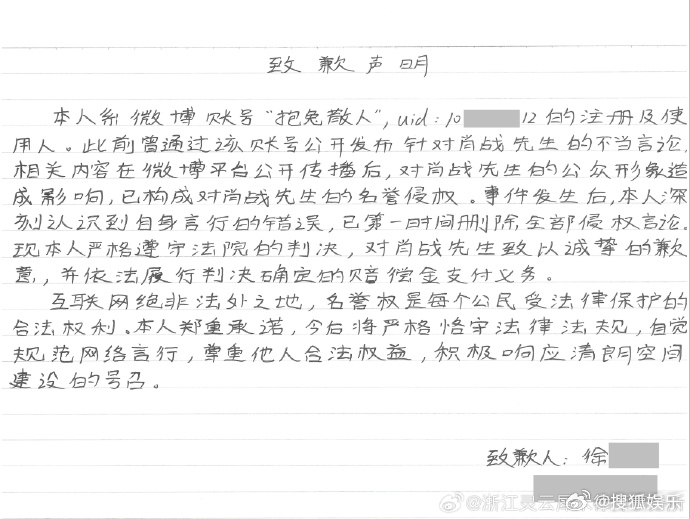 致歉声明
本人系微博账号“抱兔散人”,uid:10 12的注册及使
用人。此前曾通过该账号公开发布针对肖战先生的不当言论,
相关内容在微博平台公开传播后,对肖战先生的公众形象造
成影响,已构成对肖战先生的名誉侵权。事件发生后,本人深
刻认识到自身言行的错误,已第一时间删除全部侵权言论。
现本人严格遵守法院的判决,对肖战先生致以诚挚的歉
意,并依法履行判决确定的赔偿金支付义务。
互联网绝非法外之地,名誉权是每个公民受法律保护的
合法权利。本人郑重承诺,今后将严格恪守法律法规,自觉
规范网络言行,尊重他人合法权益,积极响应清朗空间
建设的号召。
致歉人:徐
@浙江灵云
@搜狐娱乐